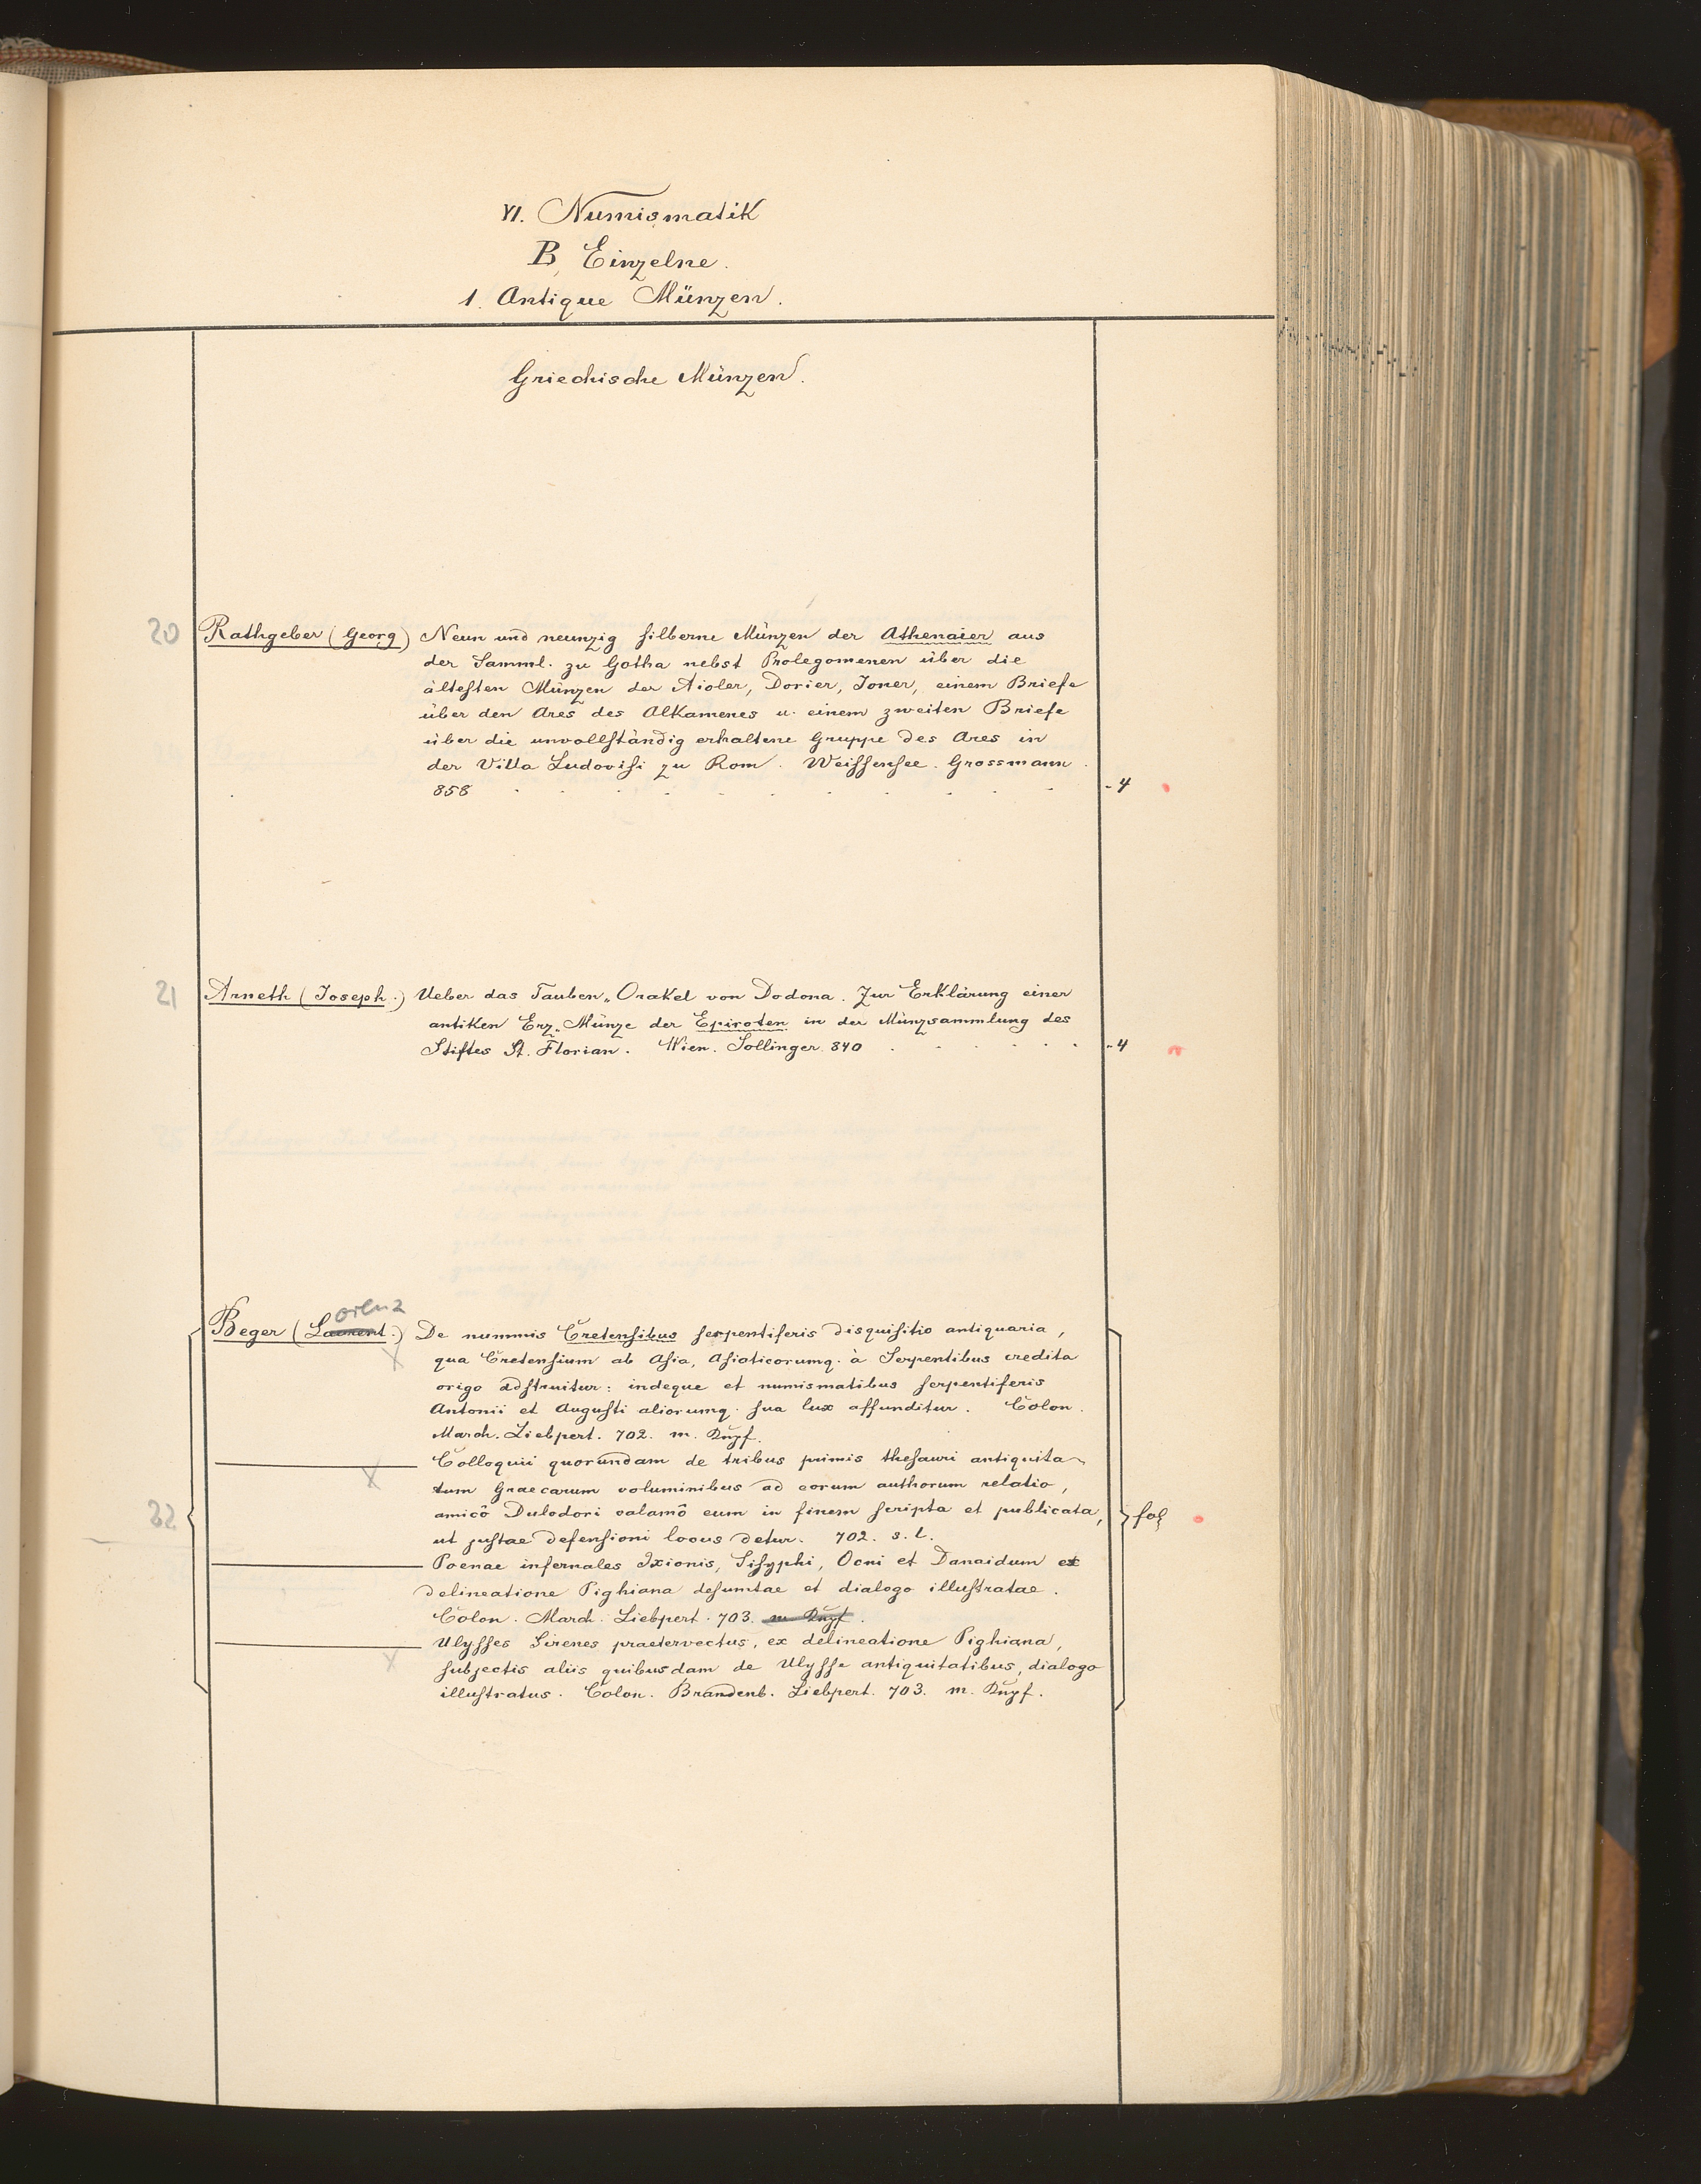 VI. Numismatik
B, Einzelne.
1. Antique Münzen.
Griechische Münzen.
20 Rathgeber (Georg) Neun und neunzig silberne Münzen der Athenaier aus
der Samml. zu Gotha nebst Prolegomenen über die
ältesten Münzen der Aioler, Dorier, Joner, einem Briefe
über den Ares des Alkamenes u. einem zweiten Briefe
über die unvollständig erhaltene Gruppe des Ares in
der Villa Ludovisi zu Rom. Weissensee. Grossmann.
858 . . . . . . . . . . - 4
21 Arneth (Joseph.) Ueber das Tauben-Orakel von Dodona. Zur Erklärung einer
antiken Erz-Münze der Epiroten in der Münzsammlung des
Stiftes St. Florian. Wien. Sollinger. 840 . . . . . . - 4
orenz
Beger (Laurent.) De nummis Cretensibus serpentiferis disquisitio antiquaria,
qua Cretensium ab Asia, Asiaticorumq. à Serpentibus credita
origo adstruitur: indeque et numismatibus serpentiferis
Antonii et Augusti aliorumq. sua lux affunditur. Colon.
March. Liebpert. 702. m. Kupf.
Colloquii quorundam de tribus primis thesauri antiquita-
tum Graecarum voluminibus ad eorum authorum relatio,
22 amicô Dulodori calamô eum in finem scripta et publicata, fol
ut justae defensioni locus detur. 702. s. l.
Poenae infernales Ixionis, Sisyphi, Ocni et Danaidum ex
delineatione Pighiana desumtae et dialogo illustratae.
Colon. March. Liebpert. 703. m Kupf.
Ulysses Sirenes praetervectus, ex delineatione Pighiana,
subjectis aliis quibusdam de Ulysse antiquitatibus, dialogo
illustratus. Colon. Brandenb. Liebpert. 703. m. Kupf.